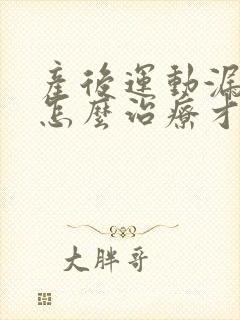 產後運動漏
怎麼治療才
大胖哥